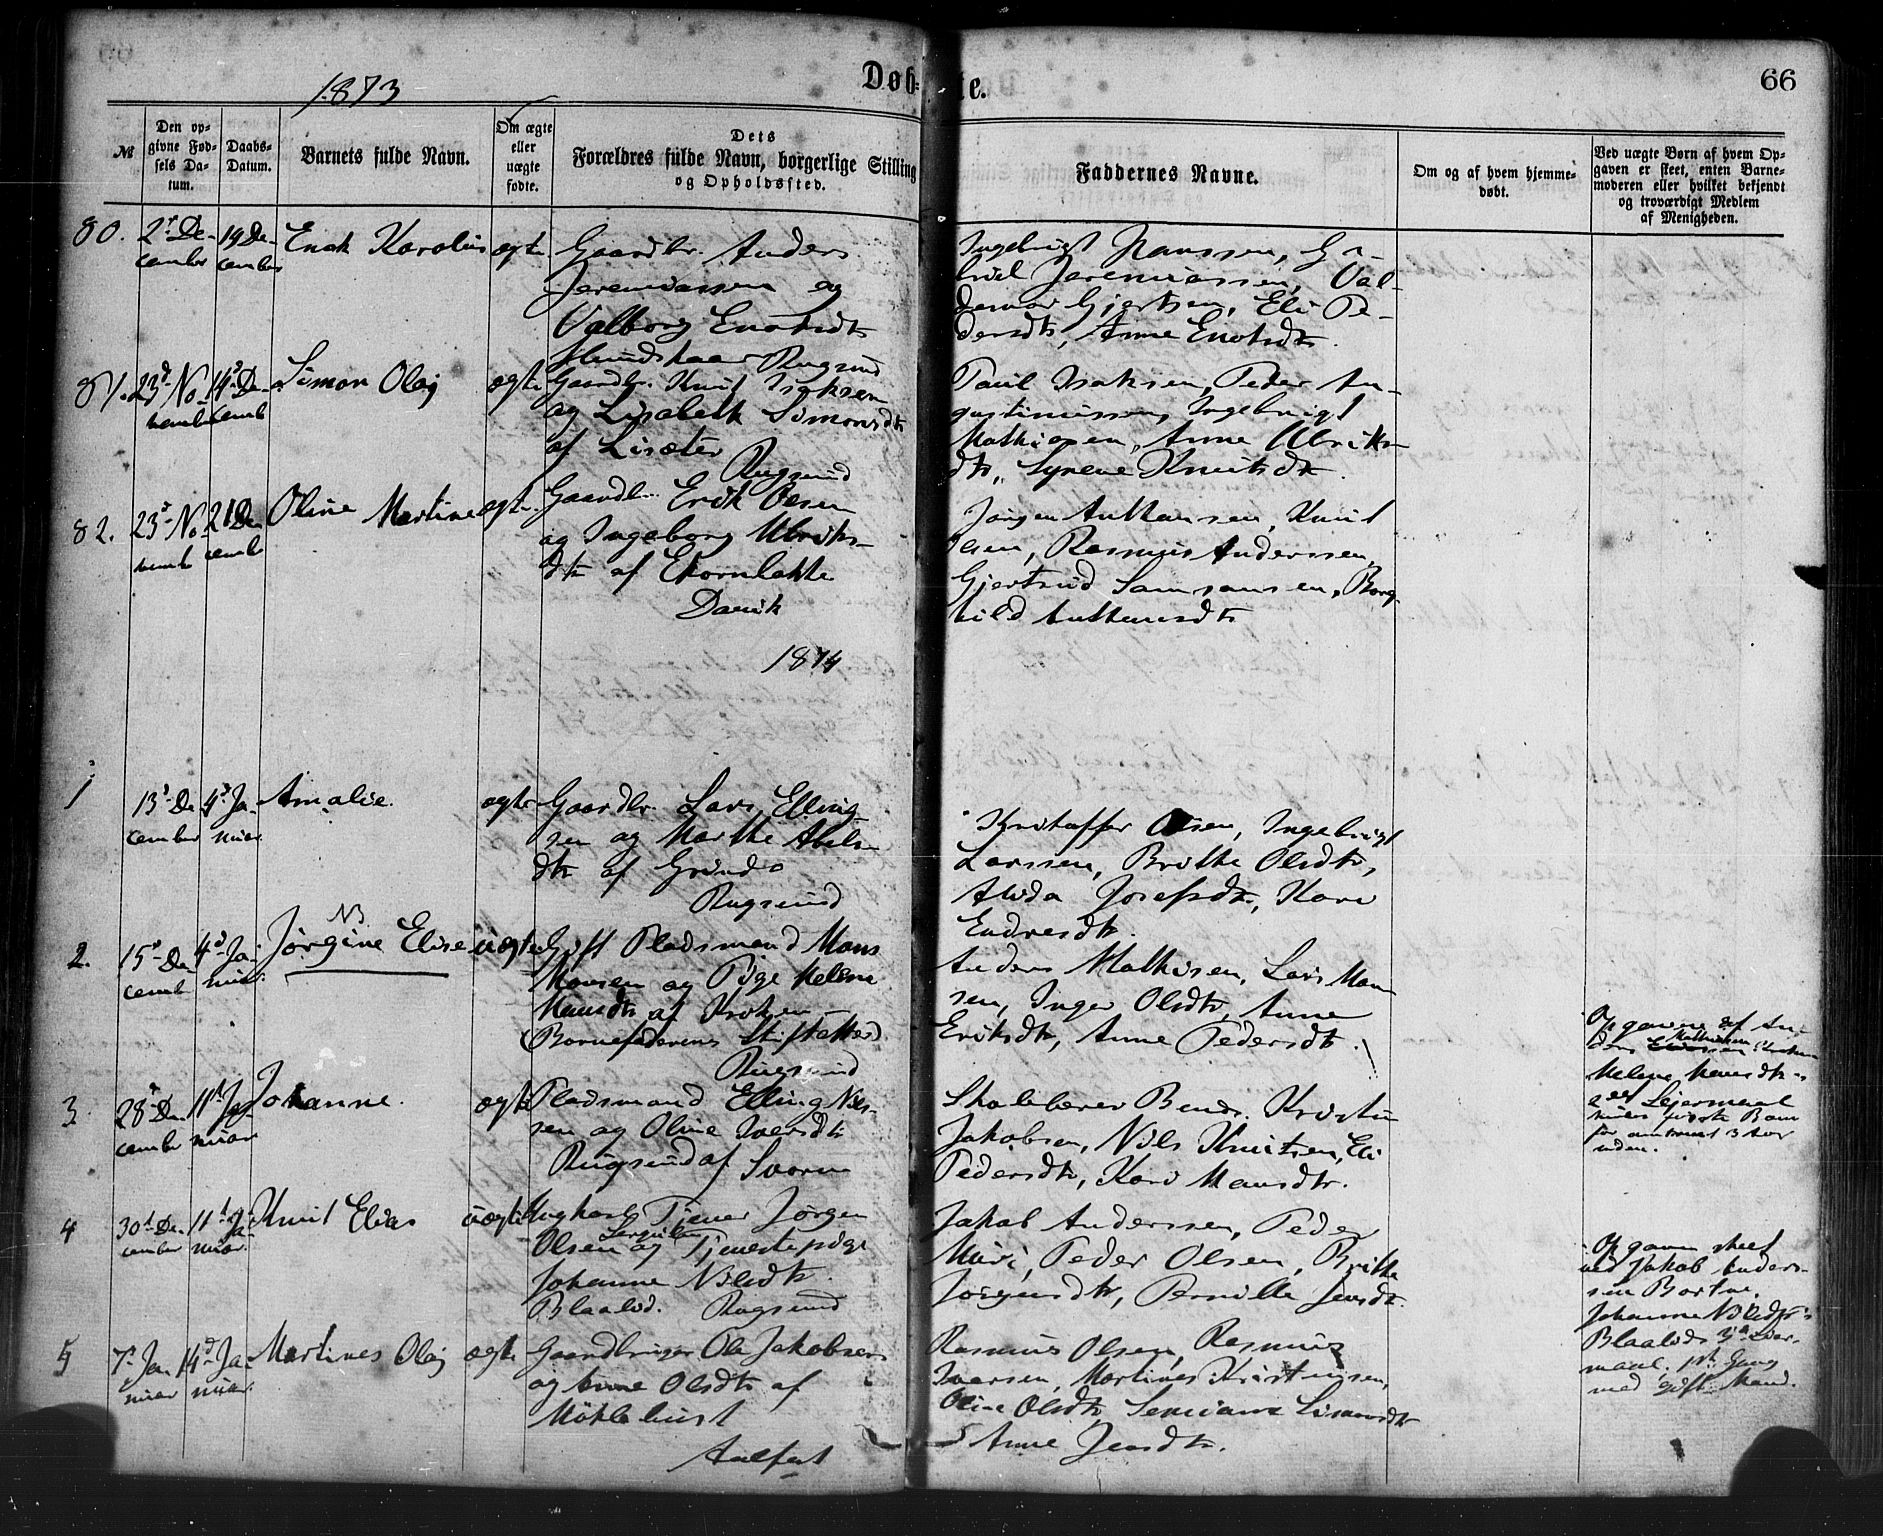 66
1873
Døb-
te.
№
Den op-
givne Fød-
sels Da-
tum.
Daabs-
Datum.
Barnets fulde Navn.
Om ægte
eller
uægte
fødte.
Dets
Forældres fulde Navn, borgerlige Stilling
og Opholdssted.
Faddernes Navne.
Om og af hvem hjemme-
døbt.
Ved uægte Børn af hvem Op-
gaven er skeet, enten Barne-
moderen eller hvilket bekjendt
og troværdigt Medlem
af Menigheden.
80.
2d De-
cember
19 De-
cember
Enok Karolius
ægte
Gaardbr. Anders
Jeremiassen og
Valborg Enoksdtr
Rugsund
Ingebrigt Hanssen, Ga-
briel Jeremiassen, Val-
demar Gjertsen, Eli Pe-
dersdtr, Anne Enoksdtr.
81.
23d No-
vember
14d De-
cember
Simon Olaj
ægte
Gaardbr. Knut Isaksen
og Lisabeth Simonsdtr
af Lisæter
Rugsund
Paul Isaksen, Peder Au-
gustinussen, Ingebrigt
Mathiasen, Anne Ulriks-
dtr, Syneve Knutsdtr.
82.
23d No-
vember
21 De
cember
Oline Martine
ægte
Gaardbr. Erik Olsen
og Ingeborg Ulriks-
dtr af Ekornbakke
Davik
Jørgen Anthansen, Knut
Olsen, Rasmus Anderssen,
Gjertrud Samsonsen, Borg-
hild Anthansdtr
1874
1
13d De
cember
4d Ja-
nuar
Amalie.
ægte
Gaardbr. Lars Elling-
sen og Marthe Abels-
dtr af Grindø
Rugsund
Kristoffer Olsen, Ingebrigt
Larssen, Brithe Olsdtr,
Alida Josefsdtr, Kari
Endresdtr.
2.
15d De
cemb
4d Ja-
nuar.
NB
Jørgine Elise
uægte
Gift Pladsmand Mons
Monsen og Pige Helene
Mansdtr af Kroken
(Barnefaderens Stifdatter)
Rugsund
Anders Mathisen, Lars Mon-
sen, Inger Olsdtr, Anne
Eriksdtr, Anne Pedersdtr.
Opgaven af An-
ders Mathisen Kroken
Helene Mansdtr-s
2det Leiermaal
første Barn
for omtrent 3 Aar
siden.
3.
28d De
cember
11te Ja
nuar
Johanne.
ægte
Pladsmand Elling Nils-
sen og Oline Iversdtr
Rugsund af
Skolelærer Bendt Kristian
Jakobsen, Nils Knutsen, Eli
Pedersdtr, Kari Mansdtr.
4
30d De-
cember
11te Ja-
nuar
Knut Elias
uægte
Ungkarl Tjener Jørgen
Olsen og Tjenestepige
Johanne Nilsdtr.
Blaalid. Rugsund
Jakob Anderssen, Peder
Muri, Peder Olsen, Brithe
Jørgensdtr, Pernille Jensdtr.
Opgaven skeet
ved Jakob Anders-
sen Bortne.
Johanne Nilsdtr's
Blaalids 3die Leier-
maal, 1ste Gang
med gift Mand.
5
7d Ja-
nuar
14d Ja-
nuar.
Martines Olaj
ægte
Gaardbruger Ole Jakobsen
og Anne Olsdtr af
Myklebust
Aalfot
Rasmus Olsen, Rasmus
Iversen, Martines Kristensen,
Oline Olsdtr, Simonsdtr
Anne Jensdtr.